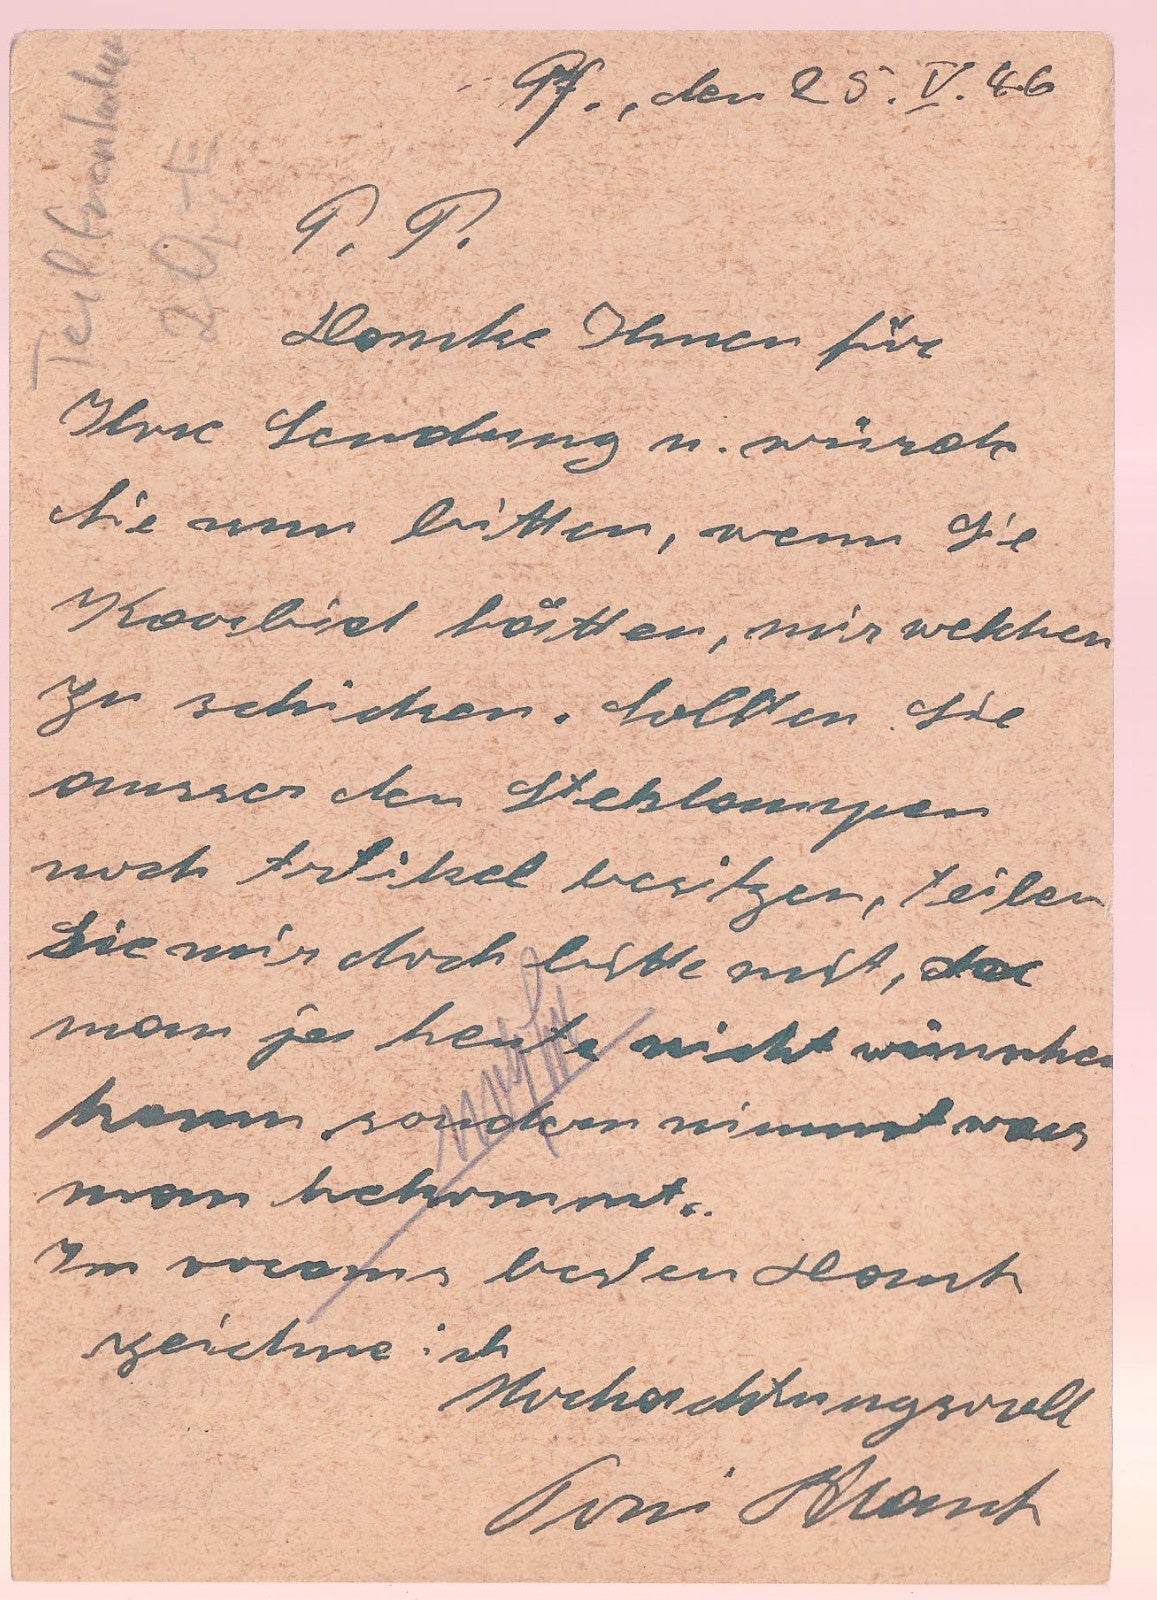 Pf., den 25. V. 46
P. T.
Danke Ihnen für
Ihre Sendung u. würde
Sie nun bitten, wenn Sie
Karbid hätten, mir welchen
zu schicken. Sollten Sie
ausser den Steklampen
noch Artikel besitzen, teilen
Sie mir doch bitte mit, da
man ja heute nicht wünschen
kann sondern nimmt was
man bekommt.
Im voraus besten Dank
zeichne ich
Hochachtungsvoll
Toni Blank